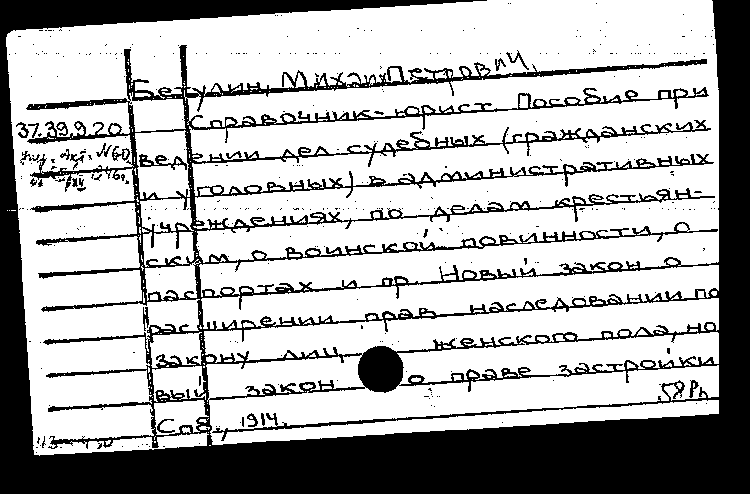 Бегулин, Михаил Петрович.
37.39.9.20
Справочник-юрист. Пособие при
ведении дел судебных (гражданских
и уголовных) в административных
учреждениях, по делам крестьян-
ским, о воинской повинности, о
паспортах и пр. Новый закон о
расширении прав наследовании по
закону лиц женского пола, но
вый закон о праве застройки
Спб., 1914.